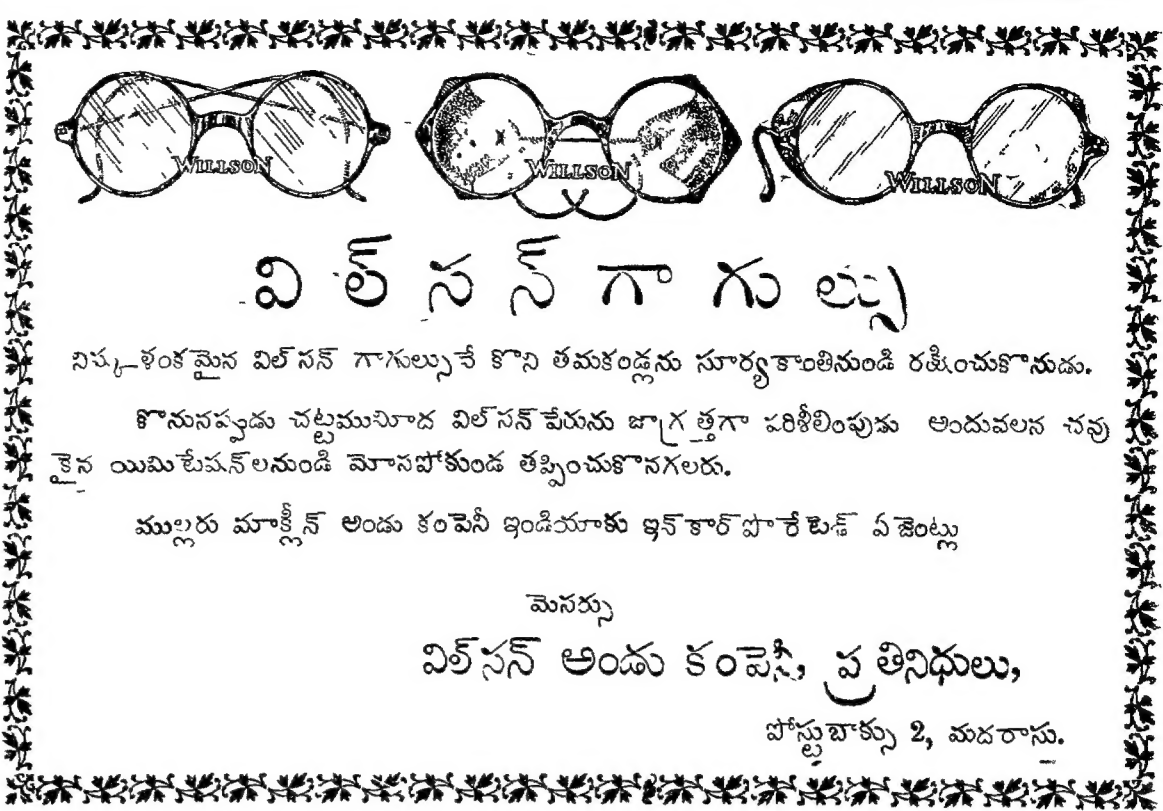 WILLSON WILLSON WILLSON
విల్ సన్ గాగుల్సు
నిష్కళంకమైన విల్ సన్ గాగుల్సునే కొని తమకండ్లను సూర్యకాంతినుండి రక్షించుకొనుడు.
కొనునప్పుడు చట్టముమీద విల్ సన్ పేరును జాగ్రత్తగా పరిశీలింపుడు అందువలన చవు
కైన యిమిటేషన్ లనుండి మోసపోకుండ తప్పించుకొనగలరు.
ముల్లరు మాక్లీన్ అండు కంపెనీ ఇండియాకు ఇన్ కార్ పొరేటెడ్ ఏజెంట్లు
మెసర్సు
విల్ సన్ అండు కంపెనీ, ప్రతినిధులు,
పోస్టుబాక్సు 2, మదరాసు.